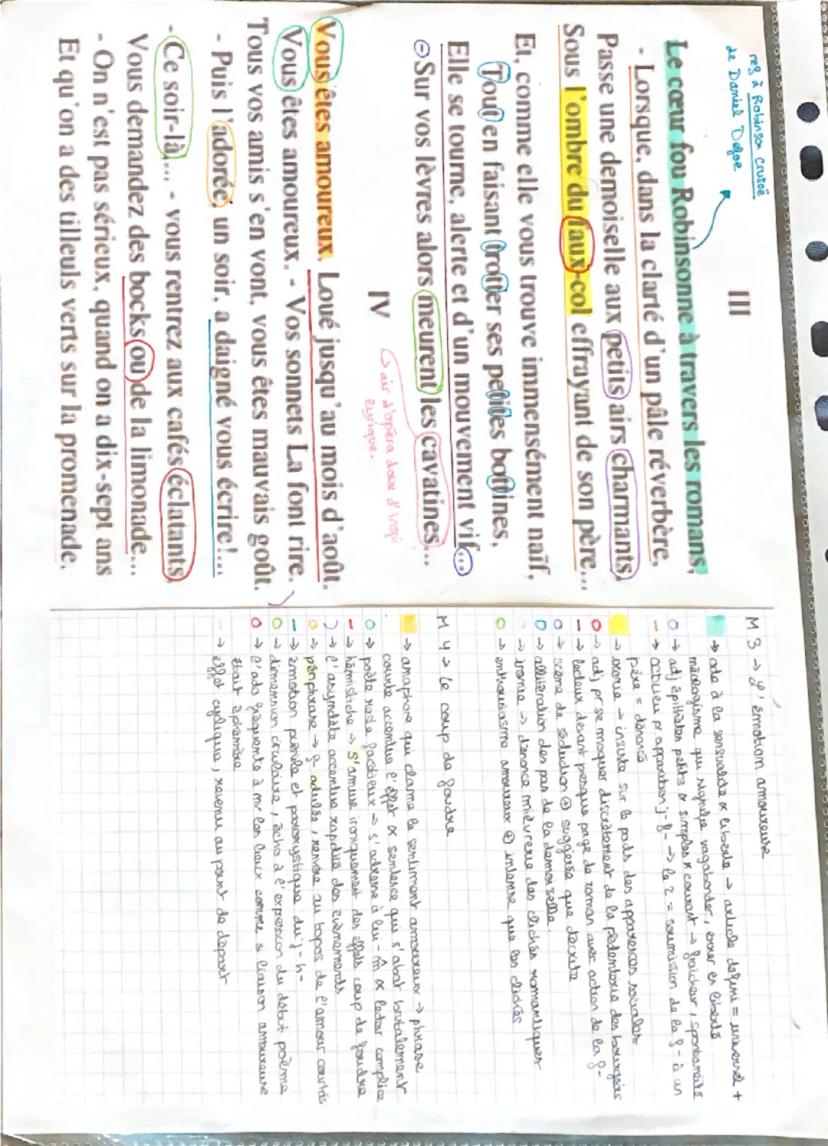 réf à Robinson Crusoë
de Daniel Defoe
III
Le cœur fou Robinsonne à travers les romans,
- Lorsque, dans la clarté d'un pâle réverbère,
Passe une demoiselle aux petits airs charmants,
Sous l'ombre du faux-col effrayant de son père...
Et, comme elle vous trouve immensément naïf,
Tout en faisant trotter ses petites bottines,
Elle se tourne, alerte et d'un mouvement vif...
⊖ Sur vos lèvres alors meurent les cavatines...
IV
↳ air d'opéra doux d'inspi
lyrique.
Vous êtes amoureux. Loué jusqu'au mois d'août.
Vous êtes amoureux. - Vos sonnets La font rire.
Tous vos amis s'en vont, vous êtes mauvais goût.
- Puis l'adorée, un soir, a daigné vous écrire!...
- Ce soir-là,... - vous rentrez aux cafés éclatants,
Vous demandez des bocks ou de la limonade...
- On n'est pas sérieux, quand on a dix-sept ans
Et qu'on a des tilleuls verts sur la promenade.
M3 → L'émotion amoureuse
→ ode à la sensualité & liberté → article défini = universel +
néologisme qui signifie vagabonder, errer en liberté
→ adj épithètes petits & simples & courant → fraîcheur, spontanéité
→ apparition j-f- → la 2 = soumission de la f- à un
père = dénoncé
→ ironie → insiste sur le poids des apparences sociales
→ adj pr se moquer discrètement de la pédanterie des bourgeois
→ lecteur devant presque page de roman avec action de la f-
→ scène de séduction ⊕ suggérée que décrite
→ allitération des pas de la demoiselle.
→ ironie → dénonce mièvrerie des clichés romantiques
→ enthousiasme amoureux ⊕ intense que les clichés
M4 → Le coup de foudre
→ anaphore qui clame le sentiment amoureux → phrase
courte accentue l'effet & sentence qui s'abat brutalement
→ poète reste facétieux → s'adresse à lui-m̂ & lecteur complice
→ hémistiche → s'amuse ironiquement des effets coup de foudre
→ l'asyndète accentue rapidité des évènements
→ périphrase → f adulée, renvoie au topos de l'amour courtois
→ émotion puérile et paroxystique du j-h-
→ dimension circulaire, écho à l'expression du début poème
→ l'ado fréquente à mr les lieux comme si liaison amoureuse
était éphémère
→ effet cyclique, revenu au point de départ